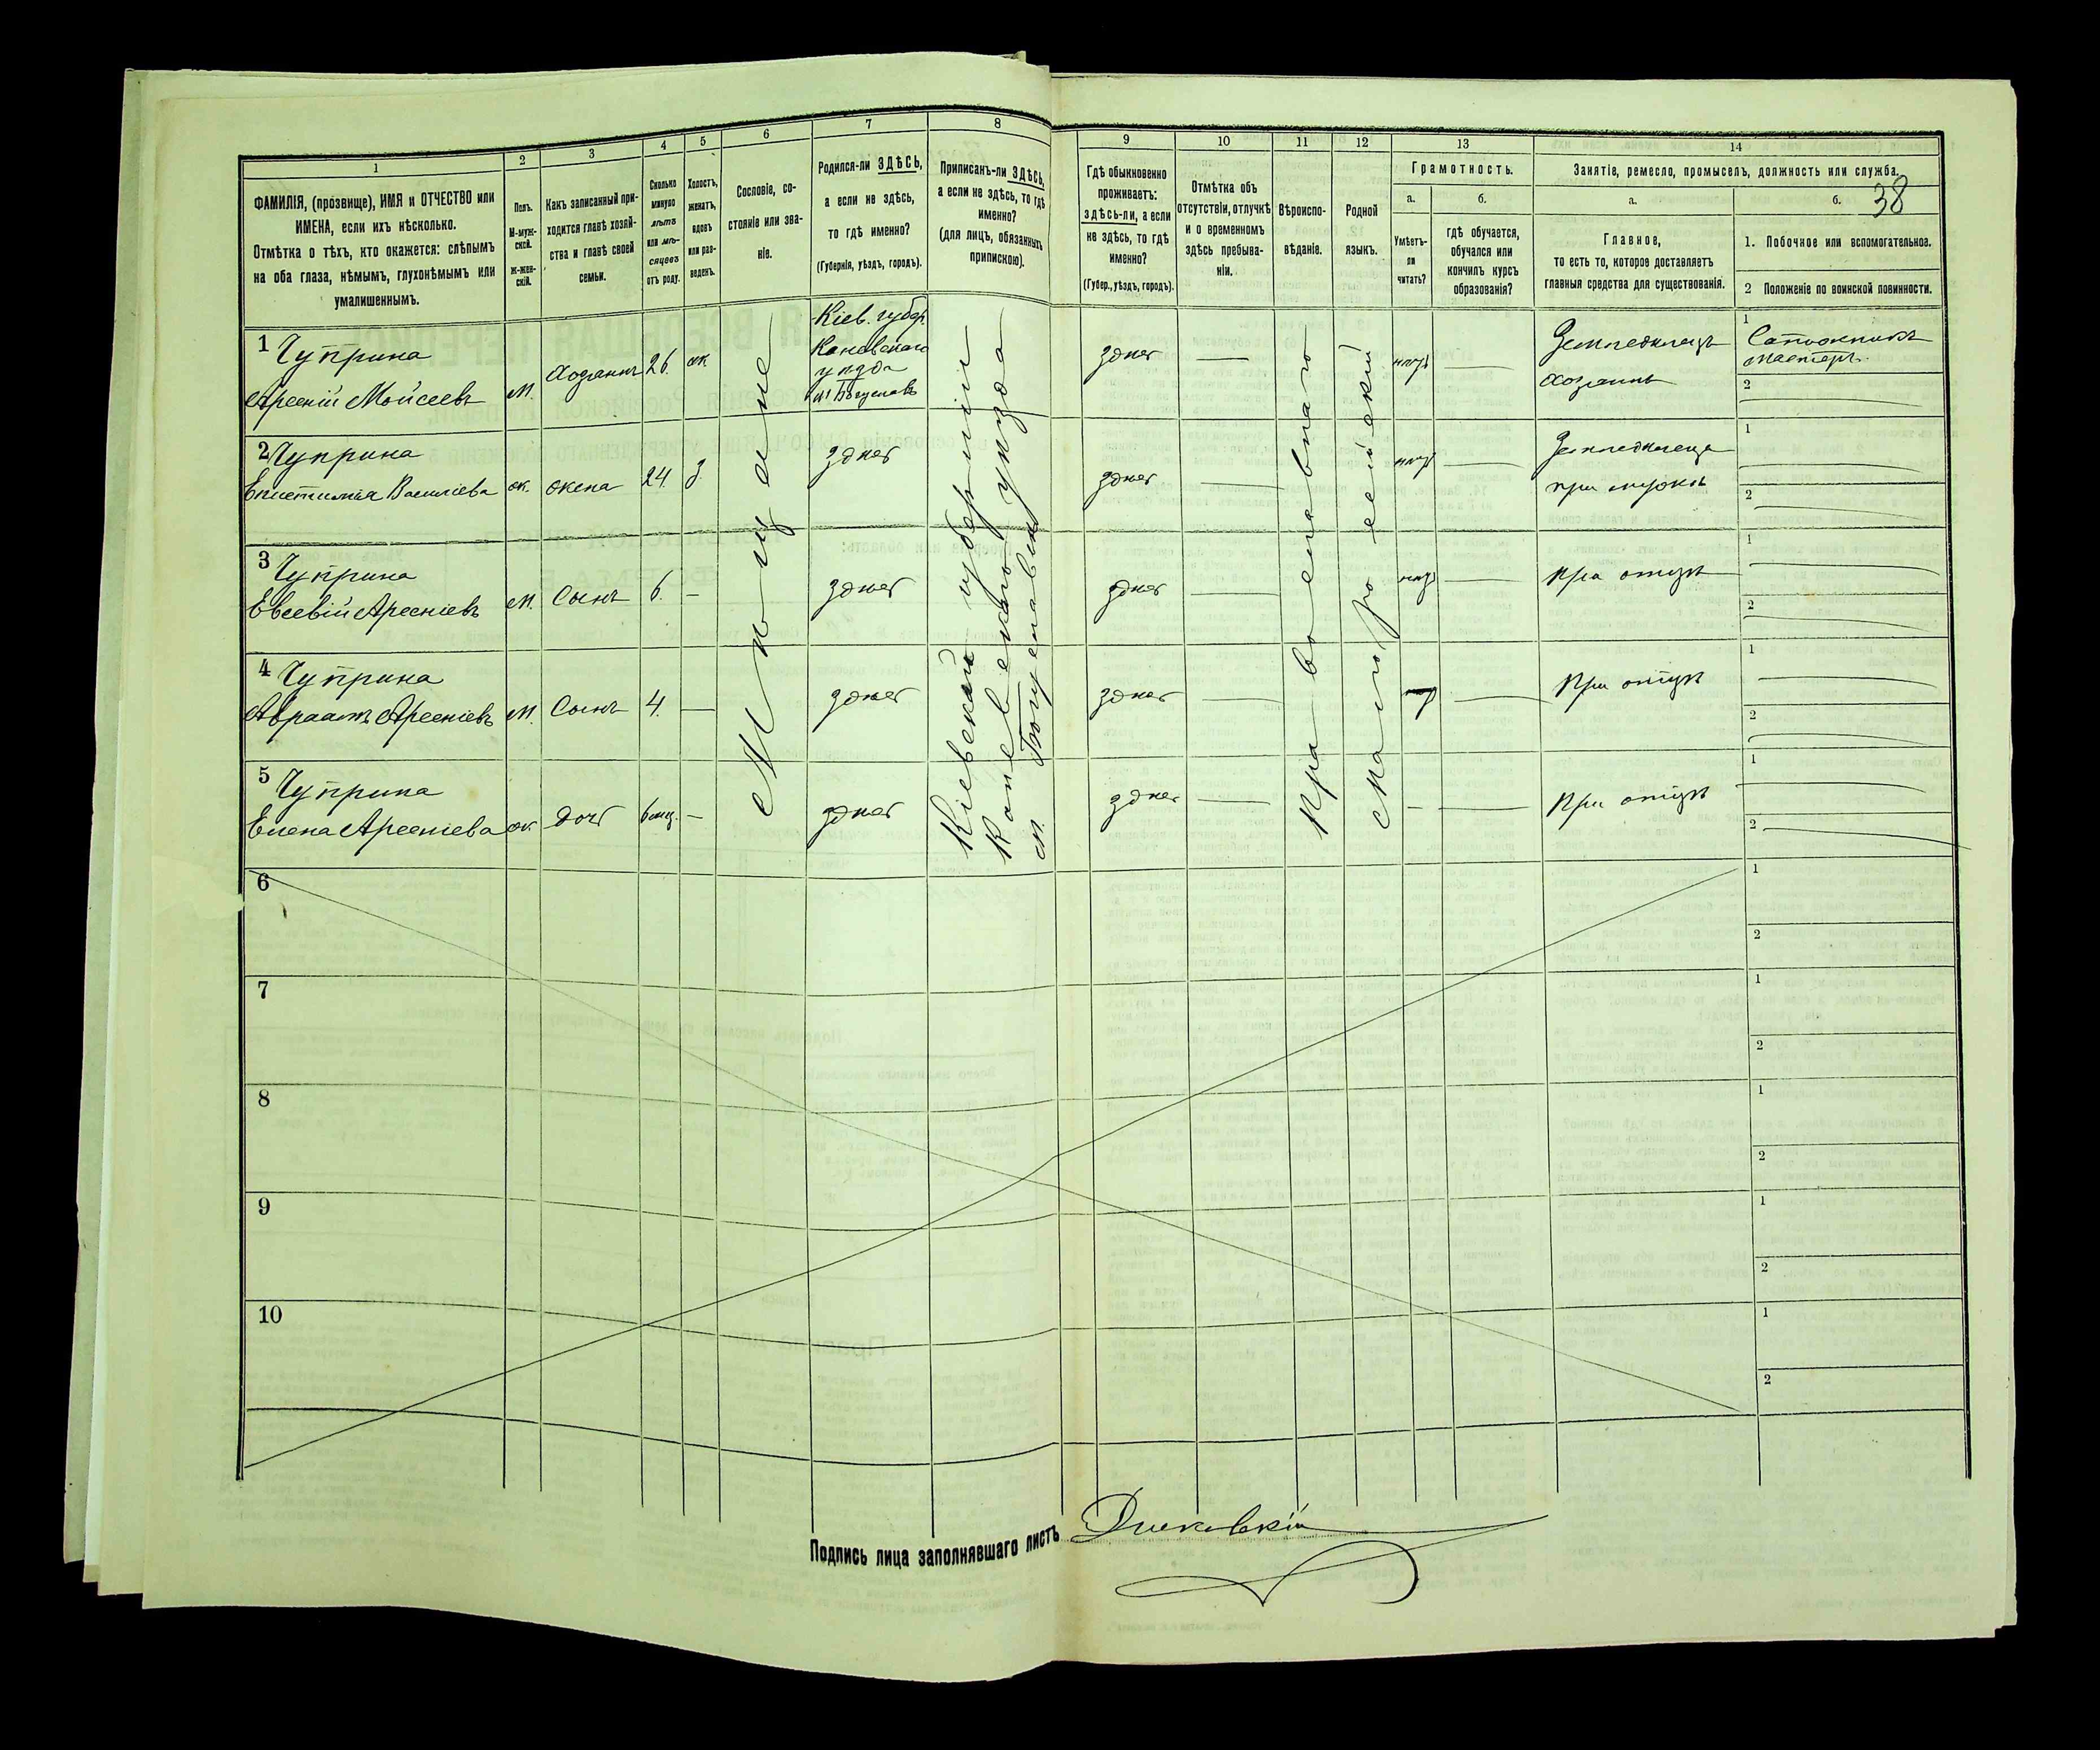 1
2
3
4
5
6
7
8
9
10
11
12
13
14
ФАМИЛІЯ, (прозвище), ИМЯ и ОТЧЕСТВО или
ИМЕНА, если ихъ нѣсколько.
Отмѣтка о тѣхъ, кто окажется: слѣпымъ
на оба глаза, нѣмымъ, глухонѣмымъ или
умалишеннымъ.
Полъ.
М-муж-
ской.
ж-жен-
скій.
Какъ записанный при-
ходится главѣ хозяй-
ства и главѣ своей
семьи.
Сколько
минуло
лѣтъ
или мѣ-
сяцевъ
отъ роду.
Холостъ,
женатъ,
вдовъ
или раз-
веденъ.
Сословіе, со-
стояніе или зва-
ніе.
Родился-ли ЗДѢСЬ,
а если не здѣсь,
то гдѣ именно?
(Губернія, уѣздъ, городъ).
Приписанъ-ли ЗДѢСЬ,
а если не здѣсь, то гдѣ
именно?
(для лицъ, обязанныхъ
припискою).
Гдѣ обыкновенно
проживаетъ:
здѣсь-ли, а если
не здѣсь, то гдѣ
именно?
(Губер., уѣздъ, городъ).
Отмѣтка объ
отсутствіи, отлучкѣ
и о временномъ
здѣсь пребыва-
ніи.
Вѣроиспо-
вѣданіе.
Родной
языкъ.
Грамотность.
а.
Умѣетъ-
ли
читать?
б.
гдѣ обучается,
обучался или
кончилъ курсъ
образованія?
Занятіе, ремесло, промыселъ, должность или служба.
а.
Главное,
то есть то, которое доставляетъ
главныя средства для существованія.
б.
38
1. Побочное или вспомогательное.
2 Положеніе по воинской повинности.
1 Чуприна
Арсеній Мойсеевъ
м.
Хозяинъ
26.
ж
Кіев. губер.
Каневскаго
уѣзда
м Богуславъ
здѣсь
—
нѣтъ
—
Земледѣлецъ
хозяинъ
1
Сапожникъ
мастеръ.
2
2 Чуприна
Епистимія Василіева
ж.
жена
24.
з.
здѣсь
здѣсь
—
нѣтъ
—
Земледѣлеца
при мужѣ
1
2
3 Чуприна
Евсевій Арсеніевъ
м.
Сынъ
6.
—
здѣсь
здѣсь
—
нѣтъ
—
При отцѣ
1
2
4 Чуприна
Авраамъ Арсеніевъ
м.
Сынъ
4.
—
здѣсь
здѣсь
—
—
При отцѣ
1
2
5 Чуприна
Елена Арсеніева
ж.
дочь
6 мц.
—
здѣсь
здѣсь
—
—
—
При отцѣ
1
2
Мѣщане
Кіевской губерніи
Каневскаго уѣзда
м. Богуславка
Православнаго
Малоросейскій
6
1
2
7
1
2
8
1
2
9
1
2
10
1
2
Подпись лица заполнявшаго листъ